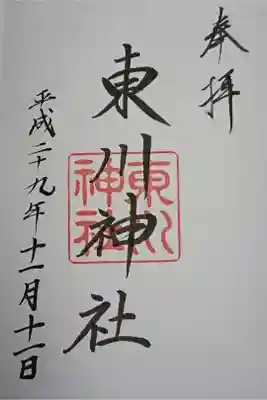 奉拝
東川神社
東川
神社
平成二十九年十一月十一日